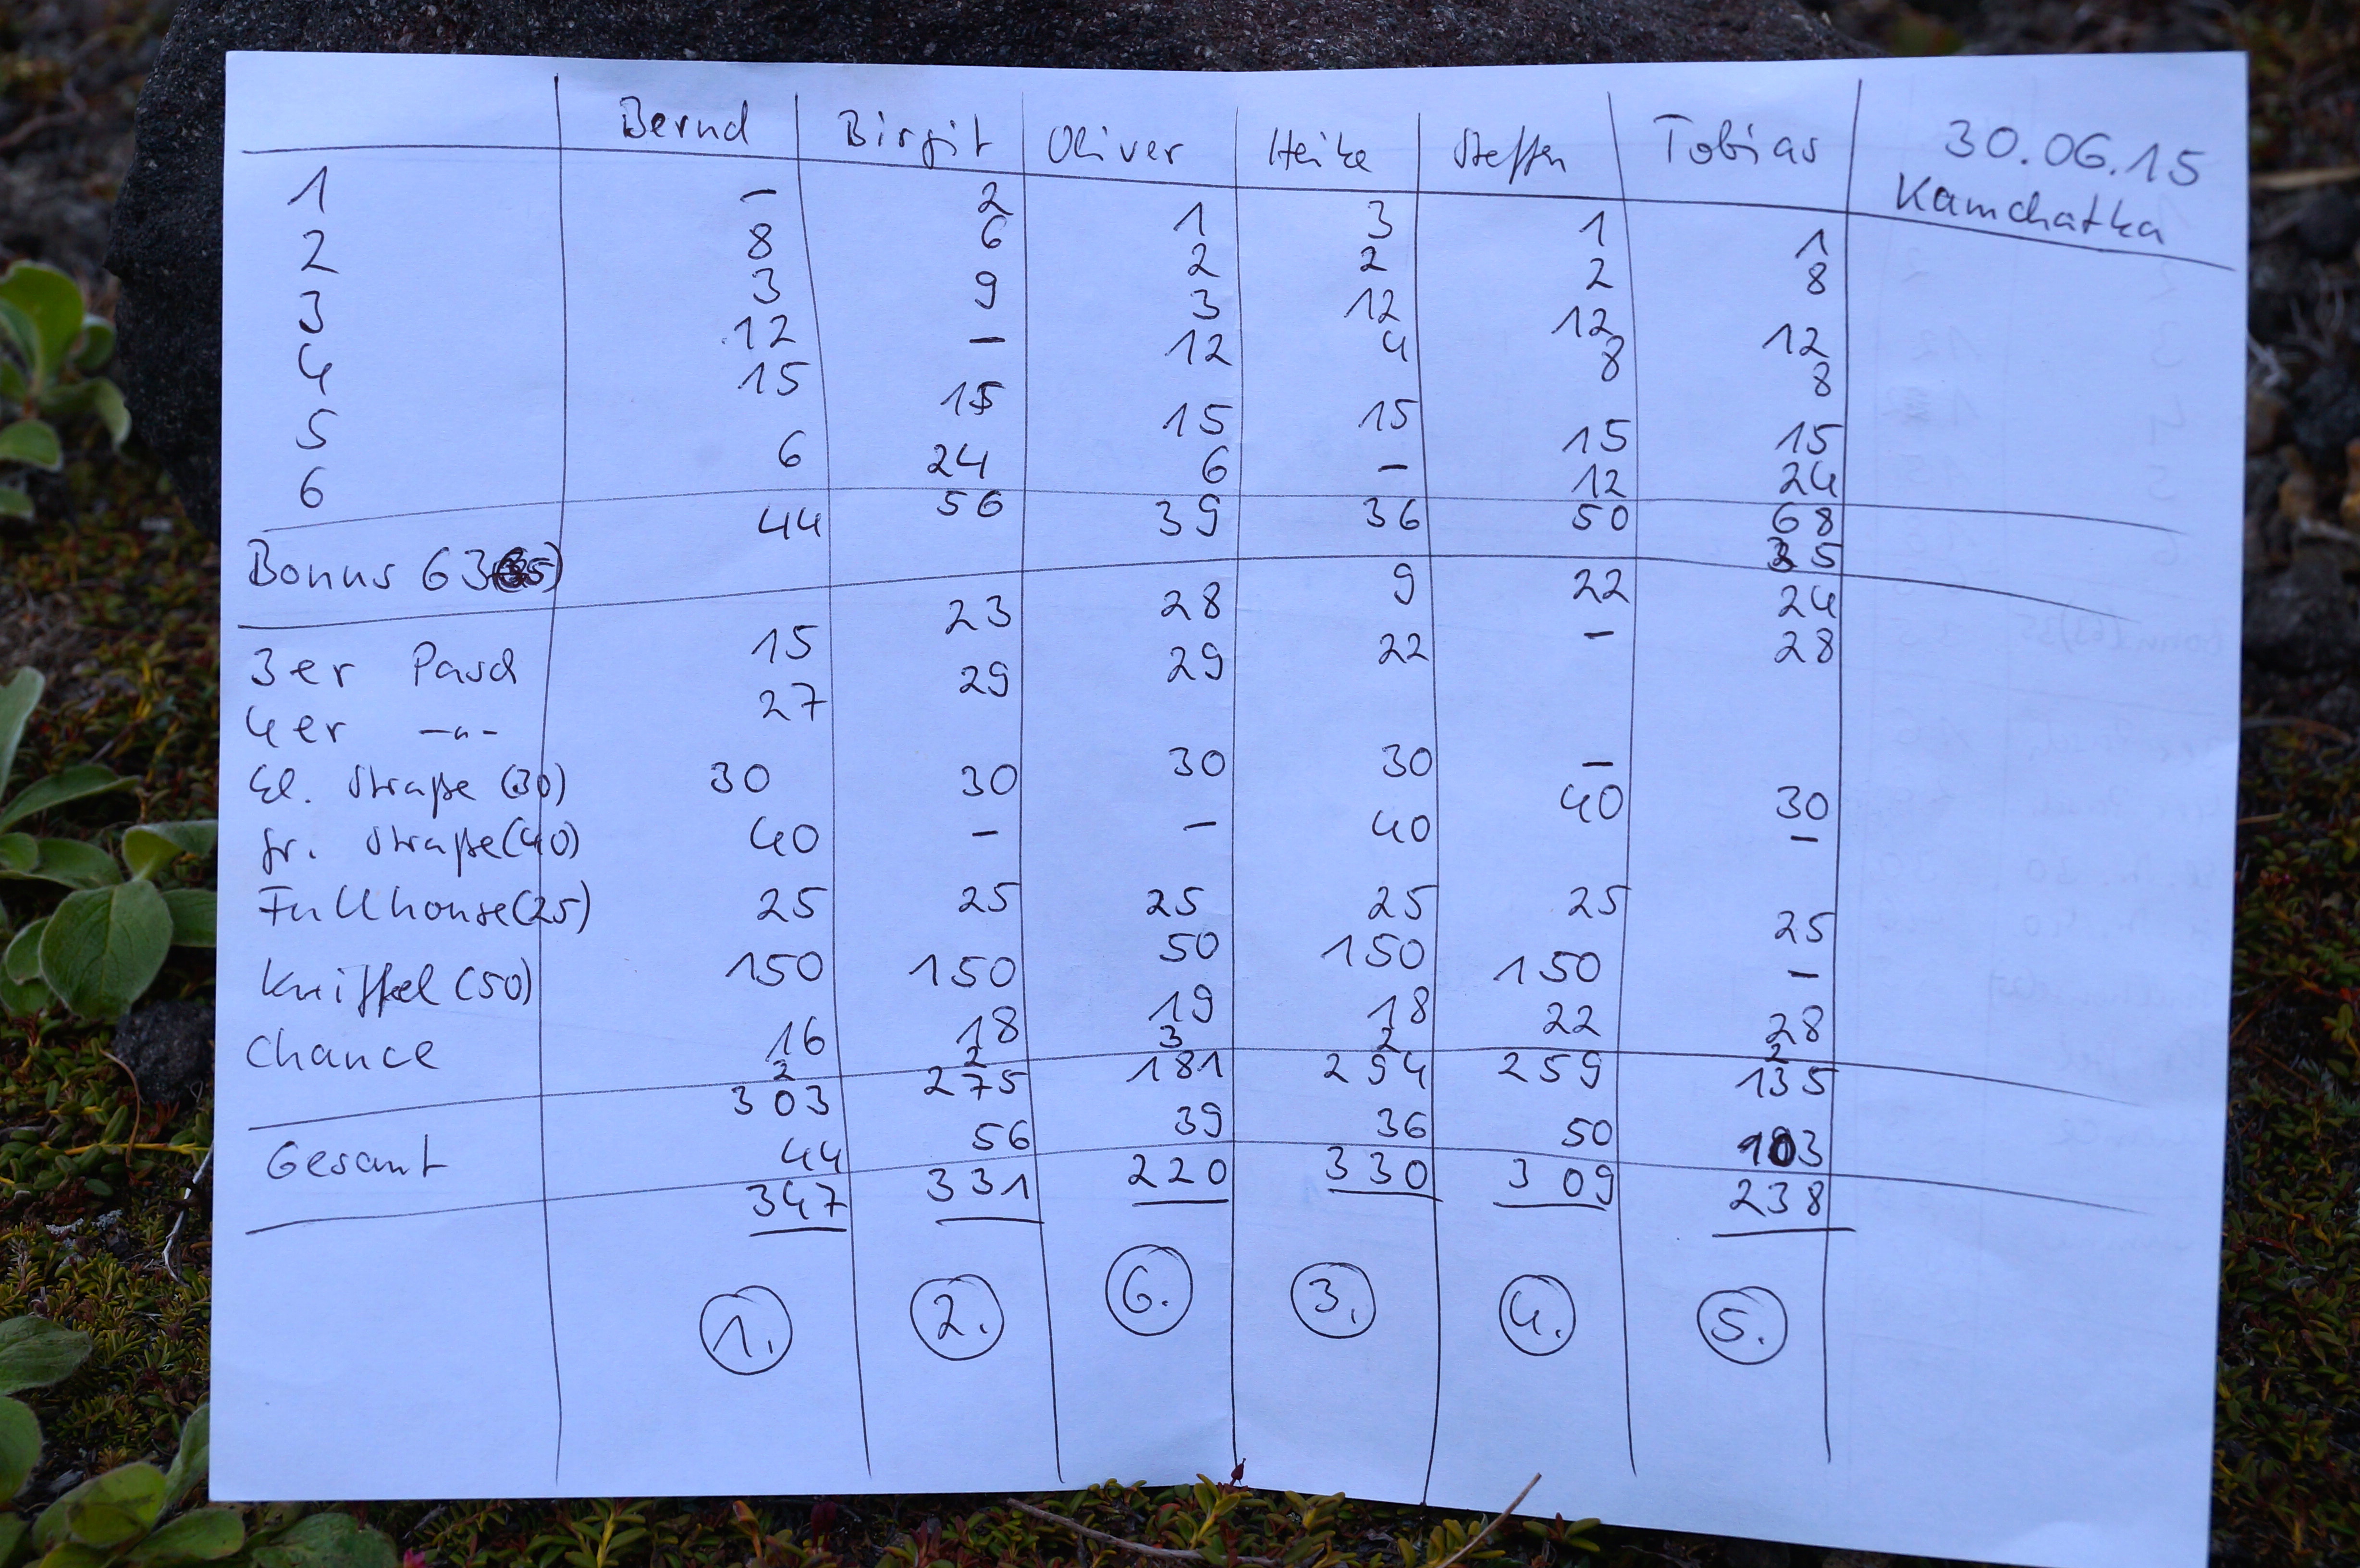 Bernd Birgit Oliver Heike Steffen Tobias 30.06.15
Kamchatka
1 – 2 1 3 1 1
2 8 6 2 2 2 8
3 3 9 3 12 12 12
4 12 – 12 4 8 8
5 15 15 15 15 15 15
6 6 24 6 – 12 24
44 56 39 36 50 68
Bonus 63 (35) 35
3er Pasch 15 23 28 9 22 24
4er –"– 27 29 29 22 – 28
Kl. Straße (30) 30 30 30 30 – 30
gr. Straße (40) 40 – – 40 40 –
Fullhouse (25) 25 25 25 25 25 25
Kniffel (50) 150 150 50 150 150 –
Chance 16 18 19 18 22 28
2 2 3 2 2
303 275 181 294 259 135
Gesamt 44 56 39 36 50 103
347 331 220 330 309 238
1. 2. 6. 3. 4. 5.